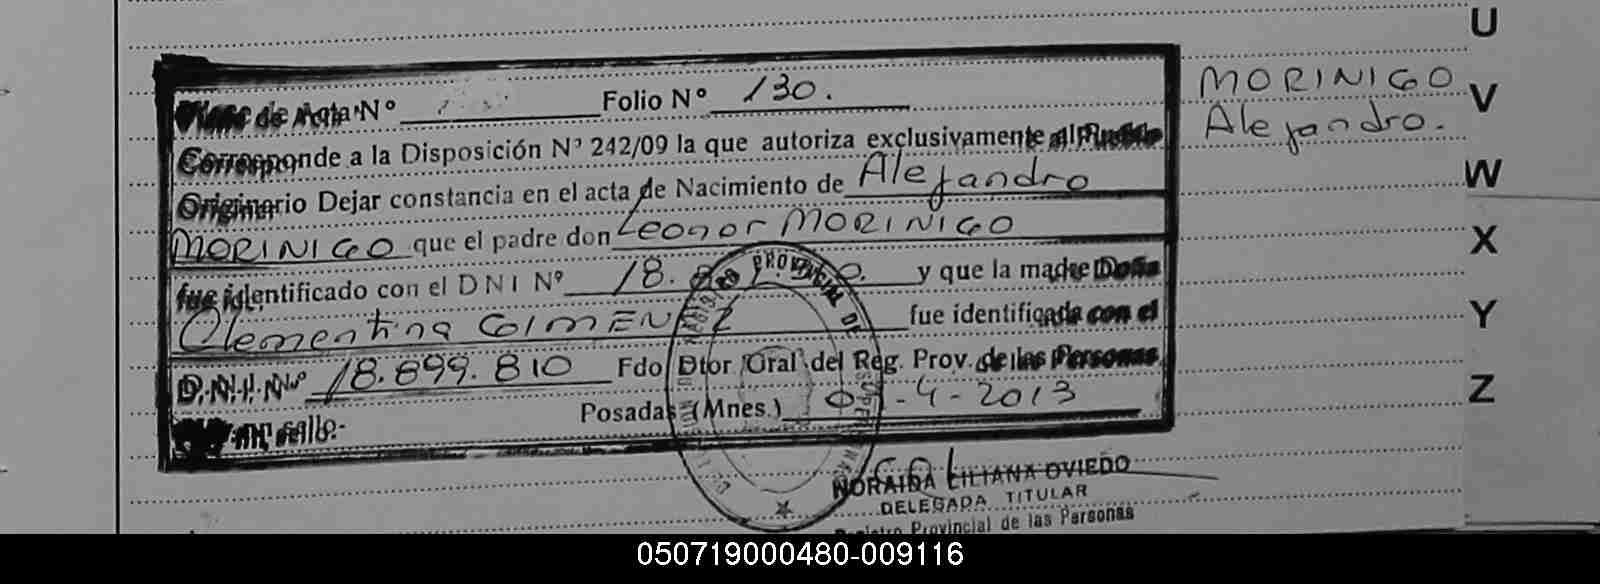 de Acta Nº Folio Nº 130.
Corresponde a la Disposición Nº 242/09 la que autoriza exclusivamente al Pueblo
Originario Dejar constancia en el acta de Nacimiento de Alejandro
MORINIGO que el padre don Leonor MORINIGO
fue identificado con el D N I Nº 18. y que la madre Doña
Clementina GIMENEZ fue identificada con el
D.N.I. Nº 18.899.810 Fdo Dtor Gral del Reg. Prov. de las Personas
sello.- Posadas (Mnes.) -4-2013
MORINIGO
Alejandro.
REGISTRO PROVINCIAL DE
NORAIDA LILIANA OVIEDO
DELEGADA TITULAR
Registro Provincial de las Personas
U
V
W
X
Y
Z
050719000480-009116